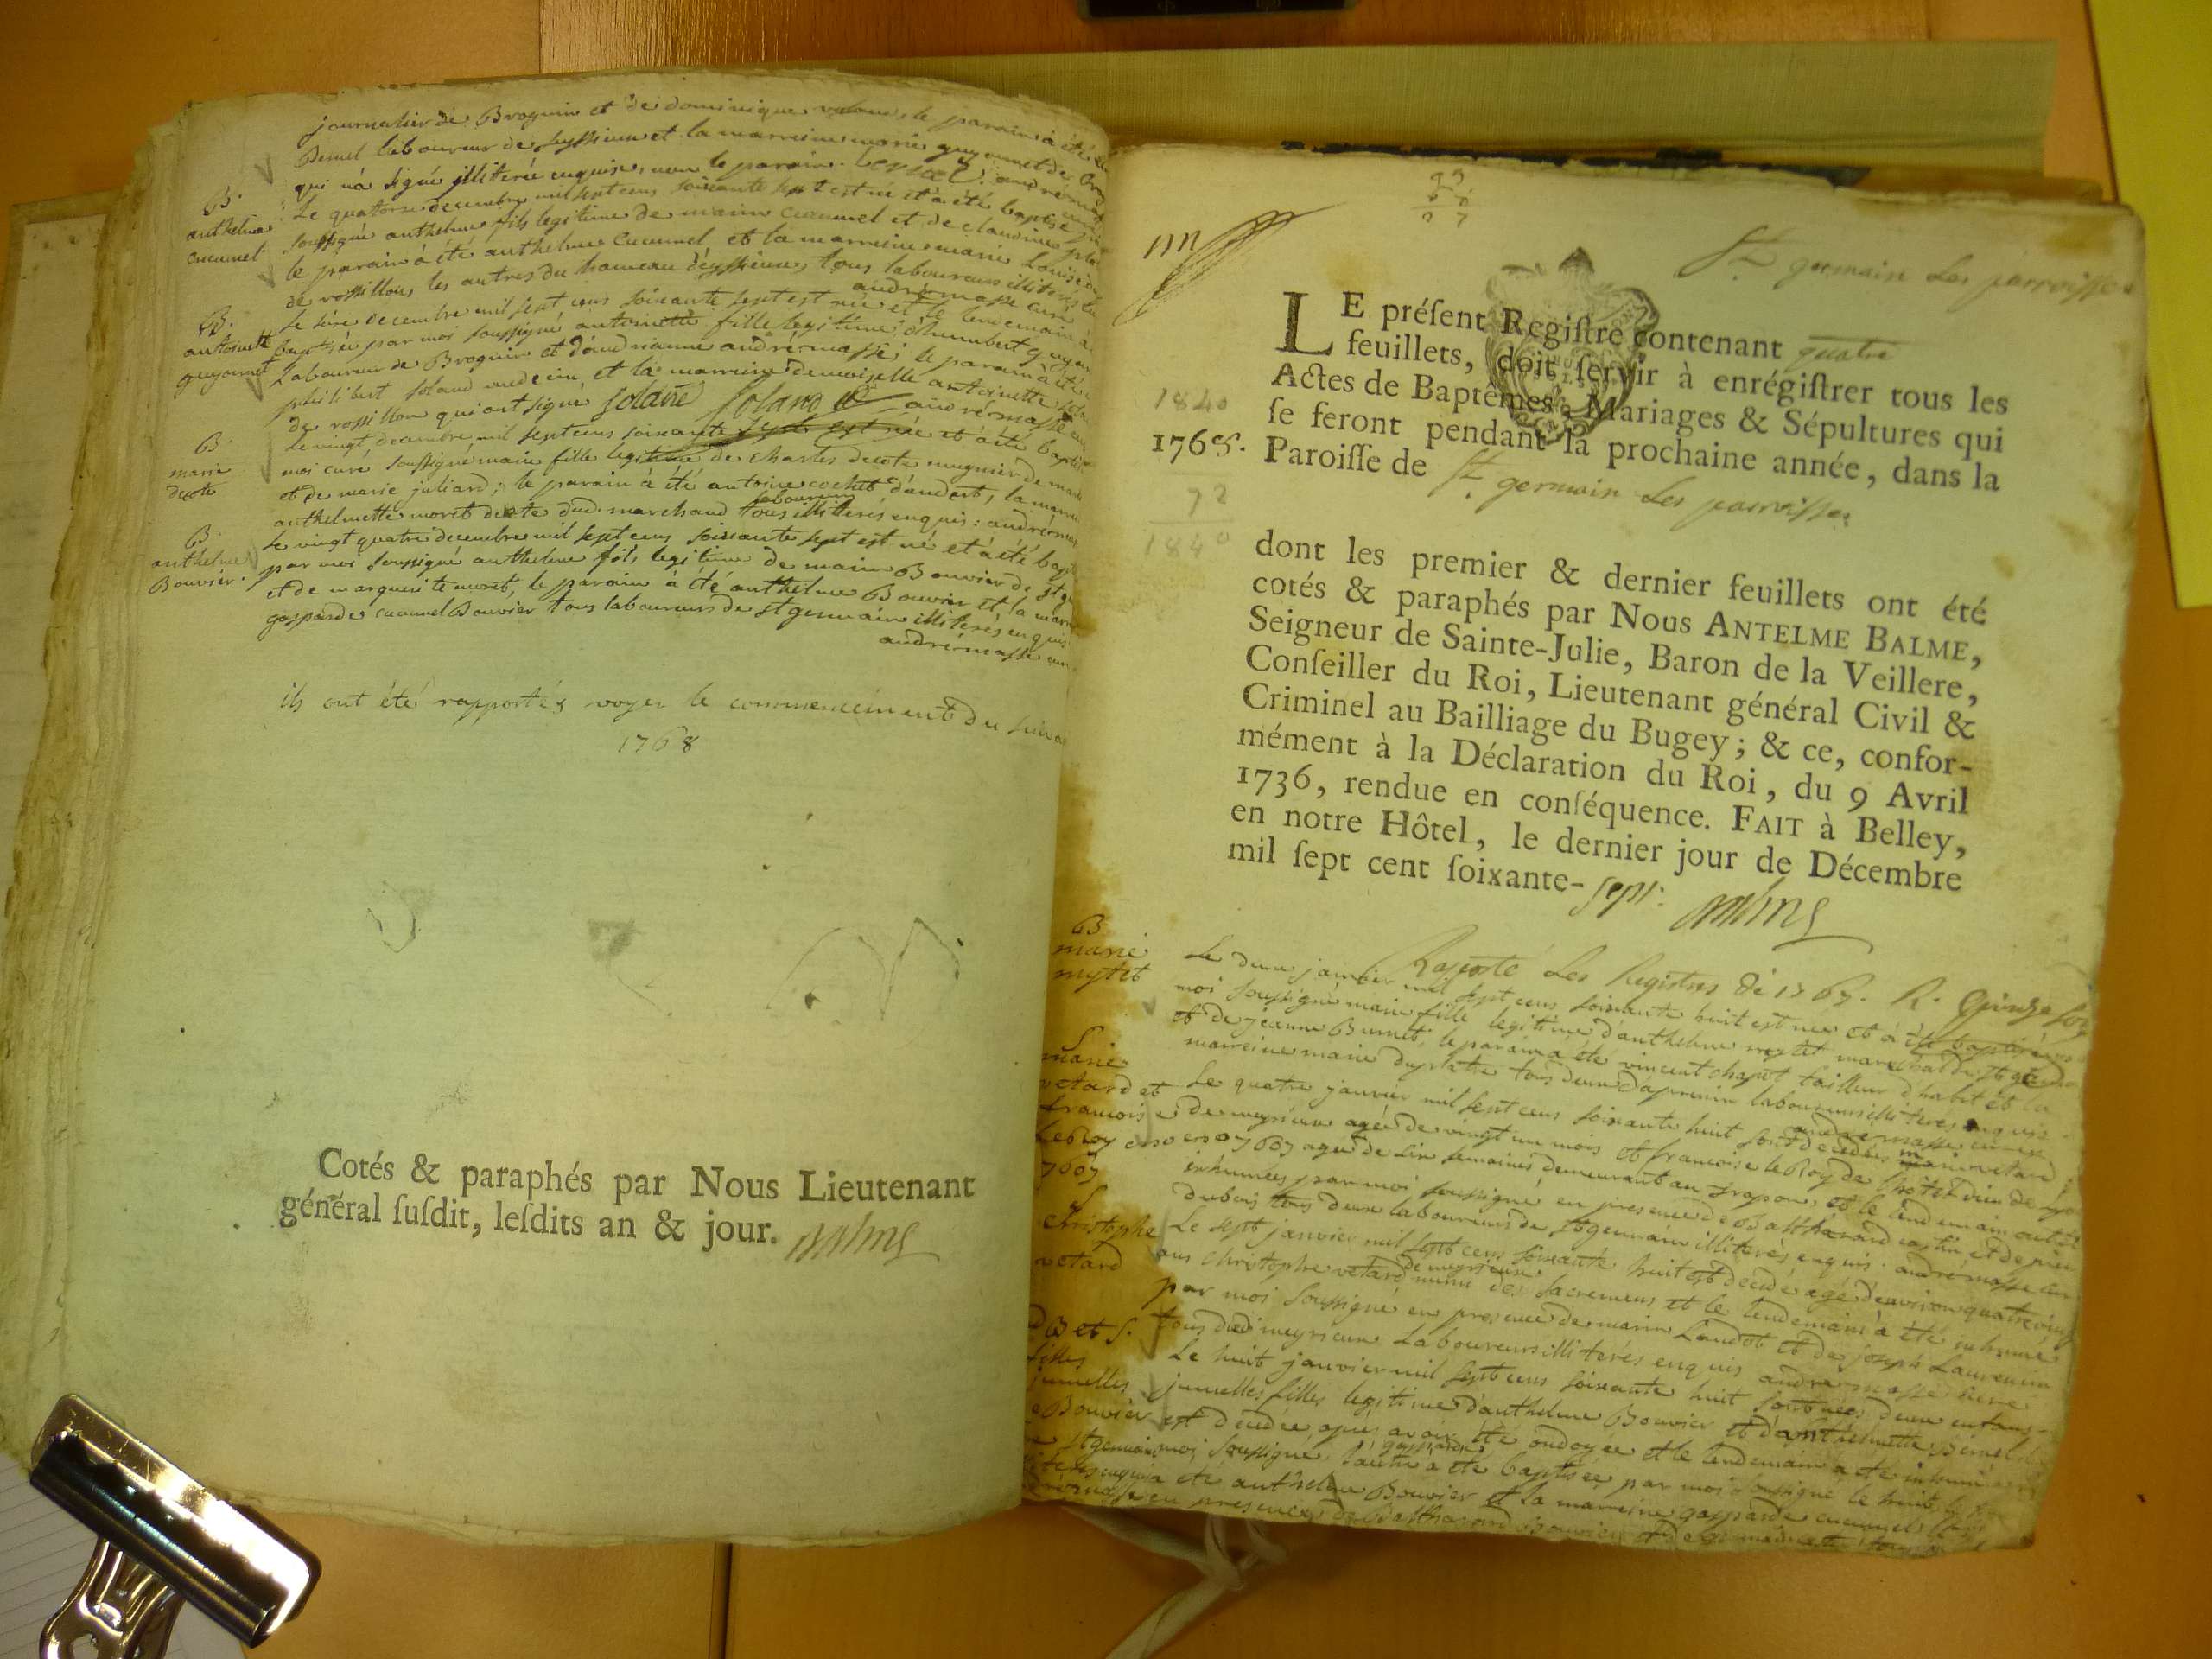 journalier de Brognin et de dominique le parain à été
Bernel laboureur de Seyssieu et la marreine marie guyonnet de
qui n'a signé illiterée enquise, non le parain. Bernel. andrémasse
B.
anthelme
cucunel
Le quatorze decembre mil sept cens soixante sept est né et à été baptisé
soussigné anthelme fils legitime de marin Cucunel et de claudine
le parain à été anthelme Cucunel et la marreine marie Louise
de rossillon, les autres du hameau d'eyssieu, tous laboureurs illiterés
andrémasse curé
B.
antoinette
guyonnet
Le seize decembre mil sept cens soixante sept est née et le lendemain à
baptisée par moi soussigné antoinette fille legitime d'humbert guyonnet
Laboureur de Brognin et d'andrianne andrémasse; le parain à été
philibert soland medecin et la marreine demoiselle antoinette
de rossillon qui ont signé soland soland andrémasse
B
marie
decote
Le vingt decembre mil sept cens soixante sept est née et à été baptisée
moi curé soussigné marie fille legitime de charles decote mugnier de
et de marie juliard; le parain à été antoine cochet d'andert, la marreine
anthelmette moret decote dud. marchand laboureurs tous illiterés enquis: andrémasse
B.
anthelme
Bouvier.
Le vingt quatre decembre mil sept cens soixante sept est né et à été bapt
par moi soussigné anthelme fils legitime de marin Bouvier de st
et de marguerite moret, le parain à été anthelme Bouvier et la marr
gasparde cucunel Bouvier tous laboureurs de st germain illiterés enquis
andrémasse
ils ont été rapportés voyer le commencement du suiva
1768
Cotés & paraphés par Nous Lieutenant
général susdit, lesdits an & jour. Balme
St germain Les parroisses
LE présent Registre contenant quatre
feuillets, doit servir à enrégistrer tous les
Actes de Baptêmes, Mariages & Sépultures qui
se feront pendant la prochaine année, dans la
Paroisse de St germain Les parroisses
1840
1768.
72
1840
dont les premier & dernier feuillets ont été
cotés & paraphés par Nous ANTELME BALME,
Seigneur de Sainte-Julie, Baron de la Veillere,
Conseiller du Roi, Lieutenant général Civil &
Criminel au Bailliage du Bugey; & ce, confor-
mément à la Déclaration du Roi, du 9 Avril
1736, rendue en conséquence. FAIT à Belley,
en notre Hôtel, le dernier jour de Décembre
mil sept cent soixante-sept. Balme
Raporté Les Registres de 1767. R. quinze sols
B
marie
mytet
Le deux janvier mil sept cens soixante huit est née et à été baptisée
moi soussigné marie fille legitime d'anthelme mytet marechal de st
et de jeanne Burnet, le parain a été vincent chapot tailleur d'habit et la
marreine marie duplatre tous deux d'apremin laboureurs illiterés enquis
andrémasse curé
S
marie
vetard et
francoise
LeRoy
7607
Le quatre janvier mil sept cens soixante huit sont decedées marie vetard
de meyrieu agée de vingt un mois et francoise le Roy de l'hotel dieu de
agée de six semaines demeurant au trapon, et le lendemain ont été
inhumées par moi soussigné en presence de Balthazard et de
dubois tous deux laboureurs de st germain illiterés enquis. andrémasse
S
christophe
vetard
Le sept janvier mil sept cens soixante huit est decedé agé d'environ quatre vingt
ans christophe vetard de meyrieu muni des sacremens et le lendemain à été inhumé
par moi soussigné en presence de marin Landot et de joseph Laurencin
tous dud. meyrieu Laboureurs illiterés enquis andrémasse curé
B et S.
filles
jumelles
Bouvier
Le huit janvier mil sept cens soixante huit sont nées deux enfans
jumelles filles legitime d'anthelme Bouvier et d'anthelmette Bernel
est decedée après avoir été ondoyée et le lendemain a été inhumée
moi soussigné, l'autre gasparde a été baptisée par moi soussigné le huit
à été anthelme Bouvier et la marreine gasparde cucunel
en presence de Balthazard Bouvier et de